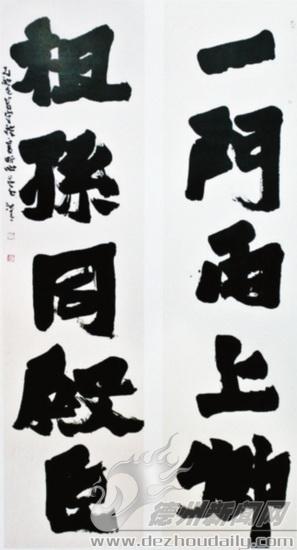 一門兩上柱
祖孫同殿臣
德州新闻网
www.dezhoudaily.com